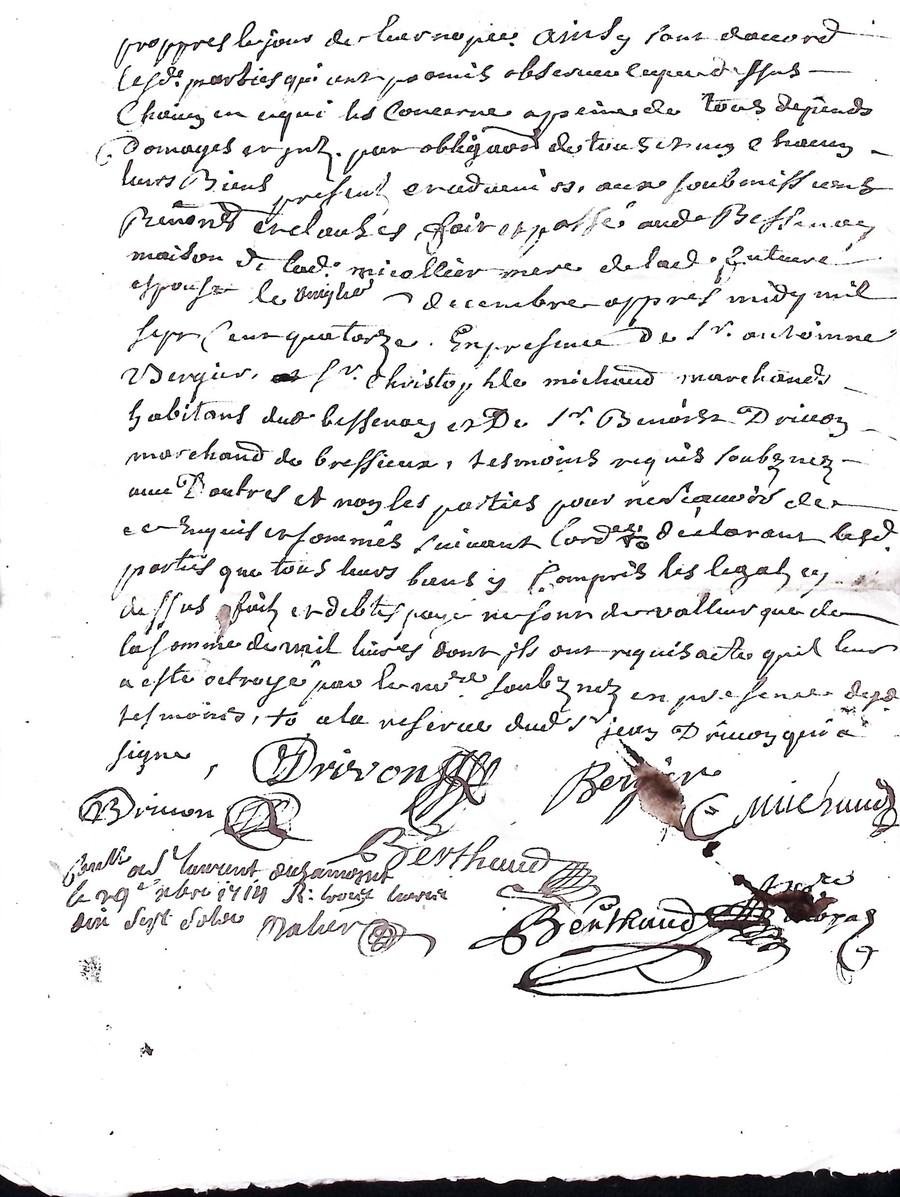 proppres le jour de leur nopce. Ainsy sont daccord
lesd. parties qui ont promis observer le quand dessus
Chacun en ce qui les Concerne appeine de tous depends
Domages et jntz. par obligaon de tous et ung chacun
leurs Biens presents et advenir, avec soubmissions
Renonons et clauses, fait et passé aud. Bessenay
maison de lad. micollier mere de lad. future
espouse le decembre appres midy mil
sept Cent quatorze. En presence de Sr. anthoinne
Bergier, Sr. Christophle michaud marchands
habitans dud. bessenay et De Sr. Benoist Drivon
marchand de bressieux, tesmoins requis soubznez
avec Dautres et non les parties pour ne scavoir de
ce Enquis et sommés suivant lordce. declarant lesd.
parties que tous leurs biens y Compris les legatz cy
dessus faitz et debtes payé ne sont de valleur que de
la somme de mil livres dont jls ont requis acte quil leur
a esté octroyé par le nore. soubznez en presence desd.
tesmoins, à la reserve dud. sr jean Drivon qui a
signé, Drivon Bergier
Drivon CMichaud
Berthaud
Con.lle a St laurent dechamousset
le 29e xbre 1714 R: treize livres
dix sept sols Berthaud